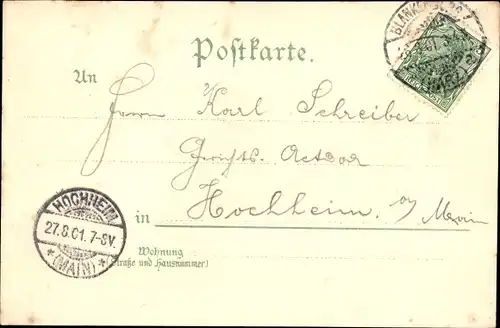 BLANKENBURG
Postkarte.
An
Herrn Karl Schreiber
Gerichts-Actuar
in Hochheim a/ Main
HOCHHEIM
27.8.01. 7-8V.
*(MAIN)*
Wohnung
(Straße und Hausnummer)